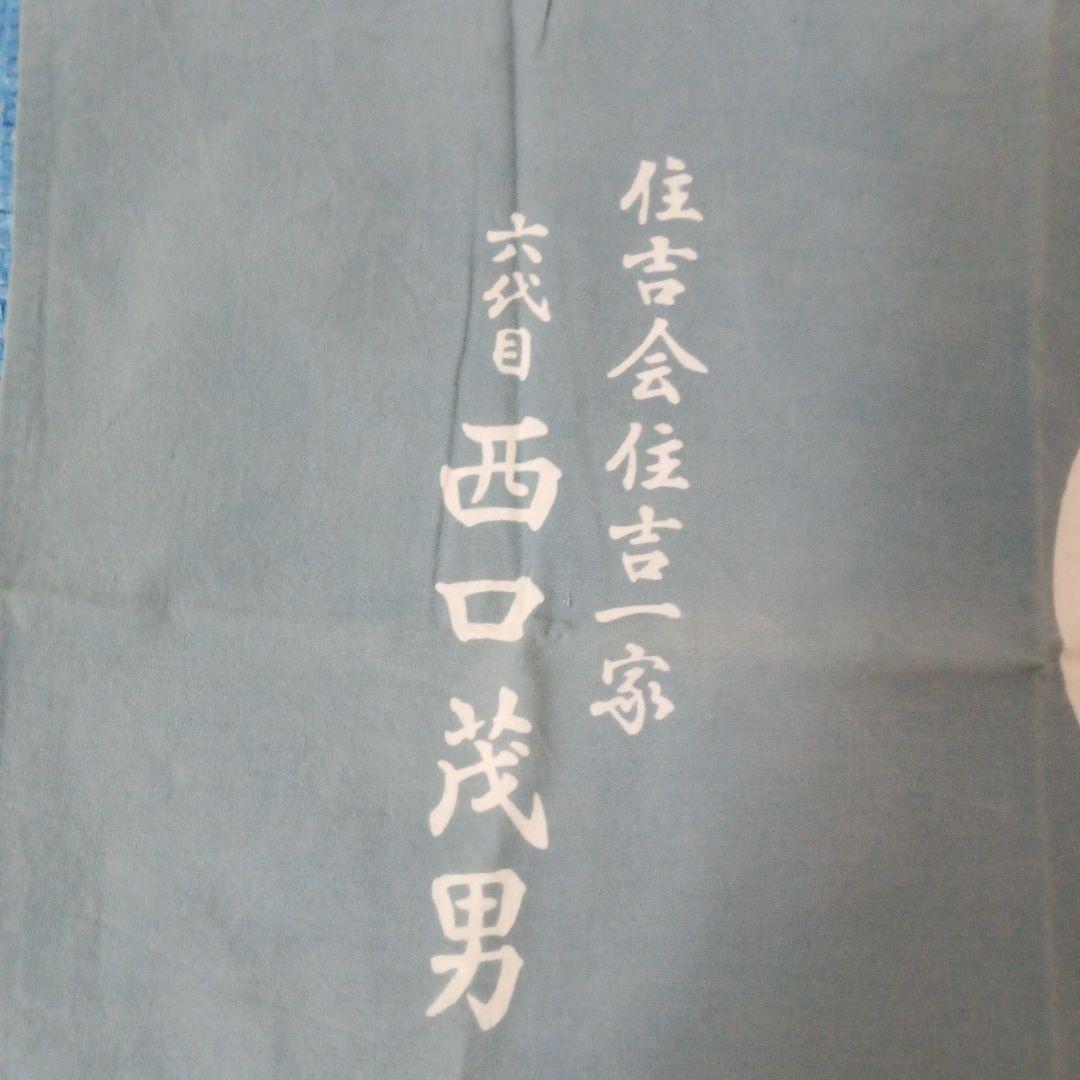 住吉会住吉一家
六代目 西口茂男